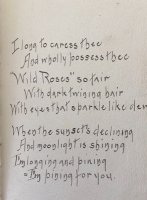 I long to caress thee
And wholly possess thee
"Wild Roses" so fair
With dark twining hair
With eyes that sparkle like dew
When the sunset's declining
And moonlight is shining
I'm longing and pining
I'm pining for you.